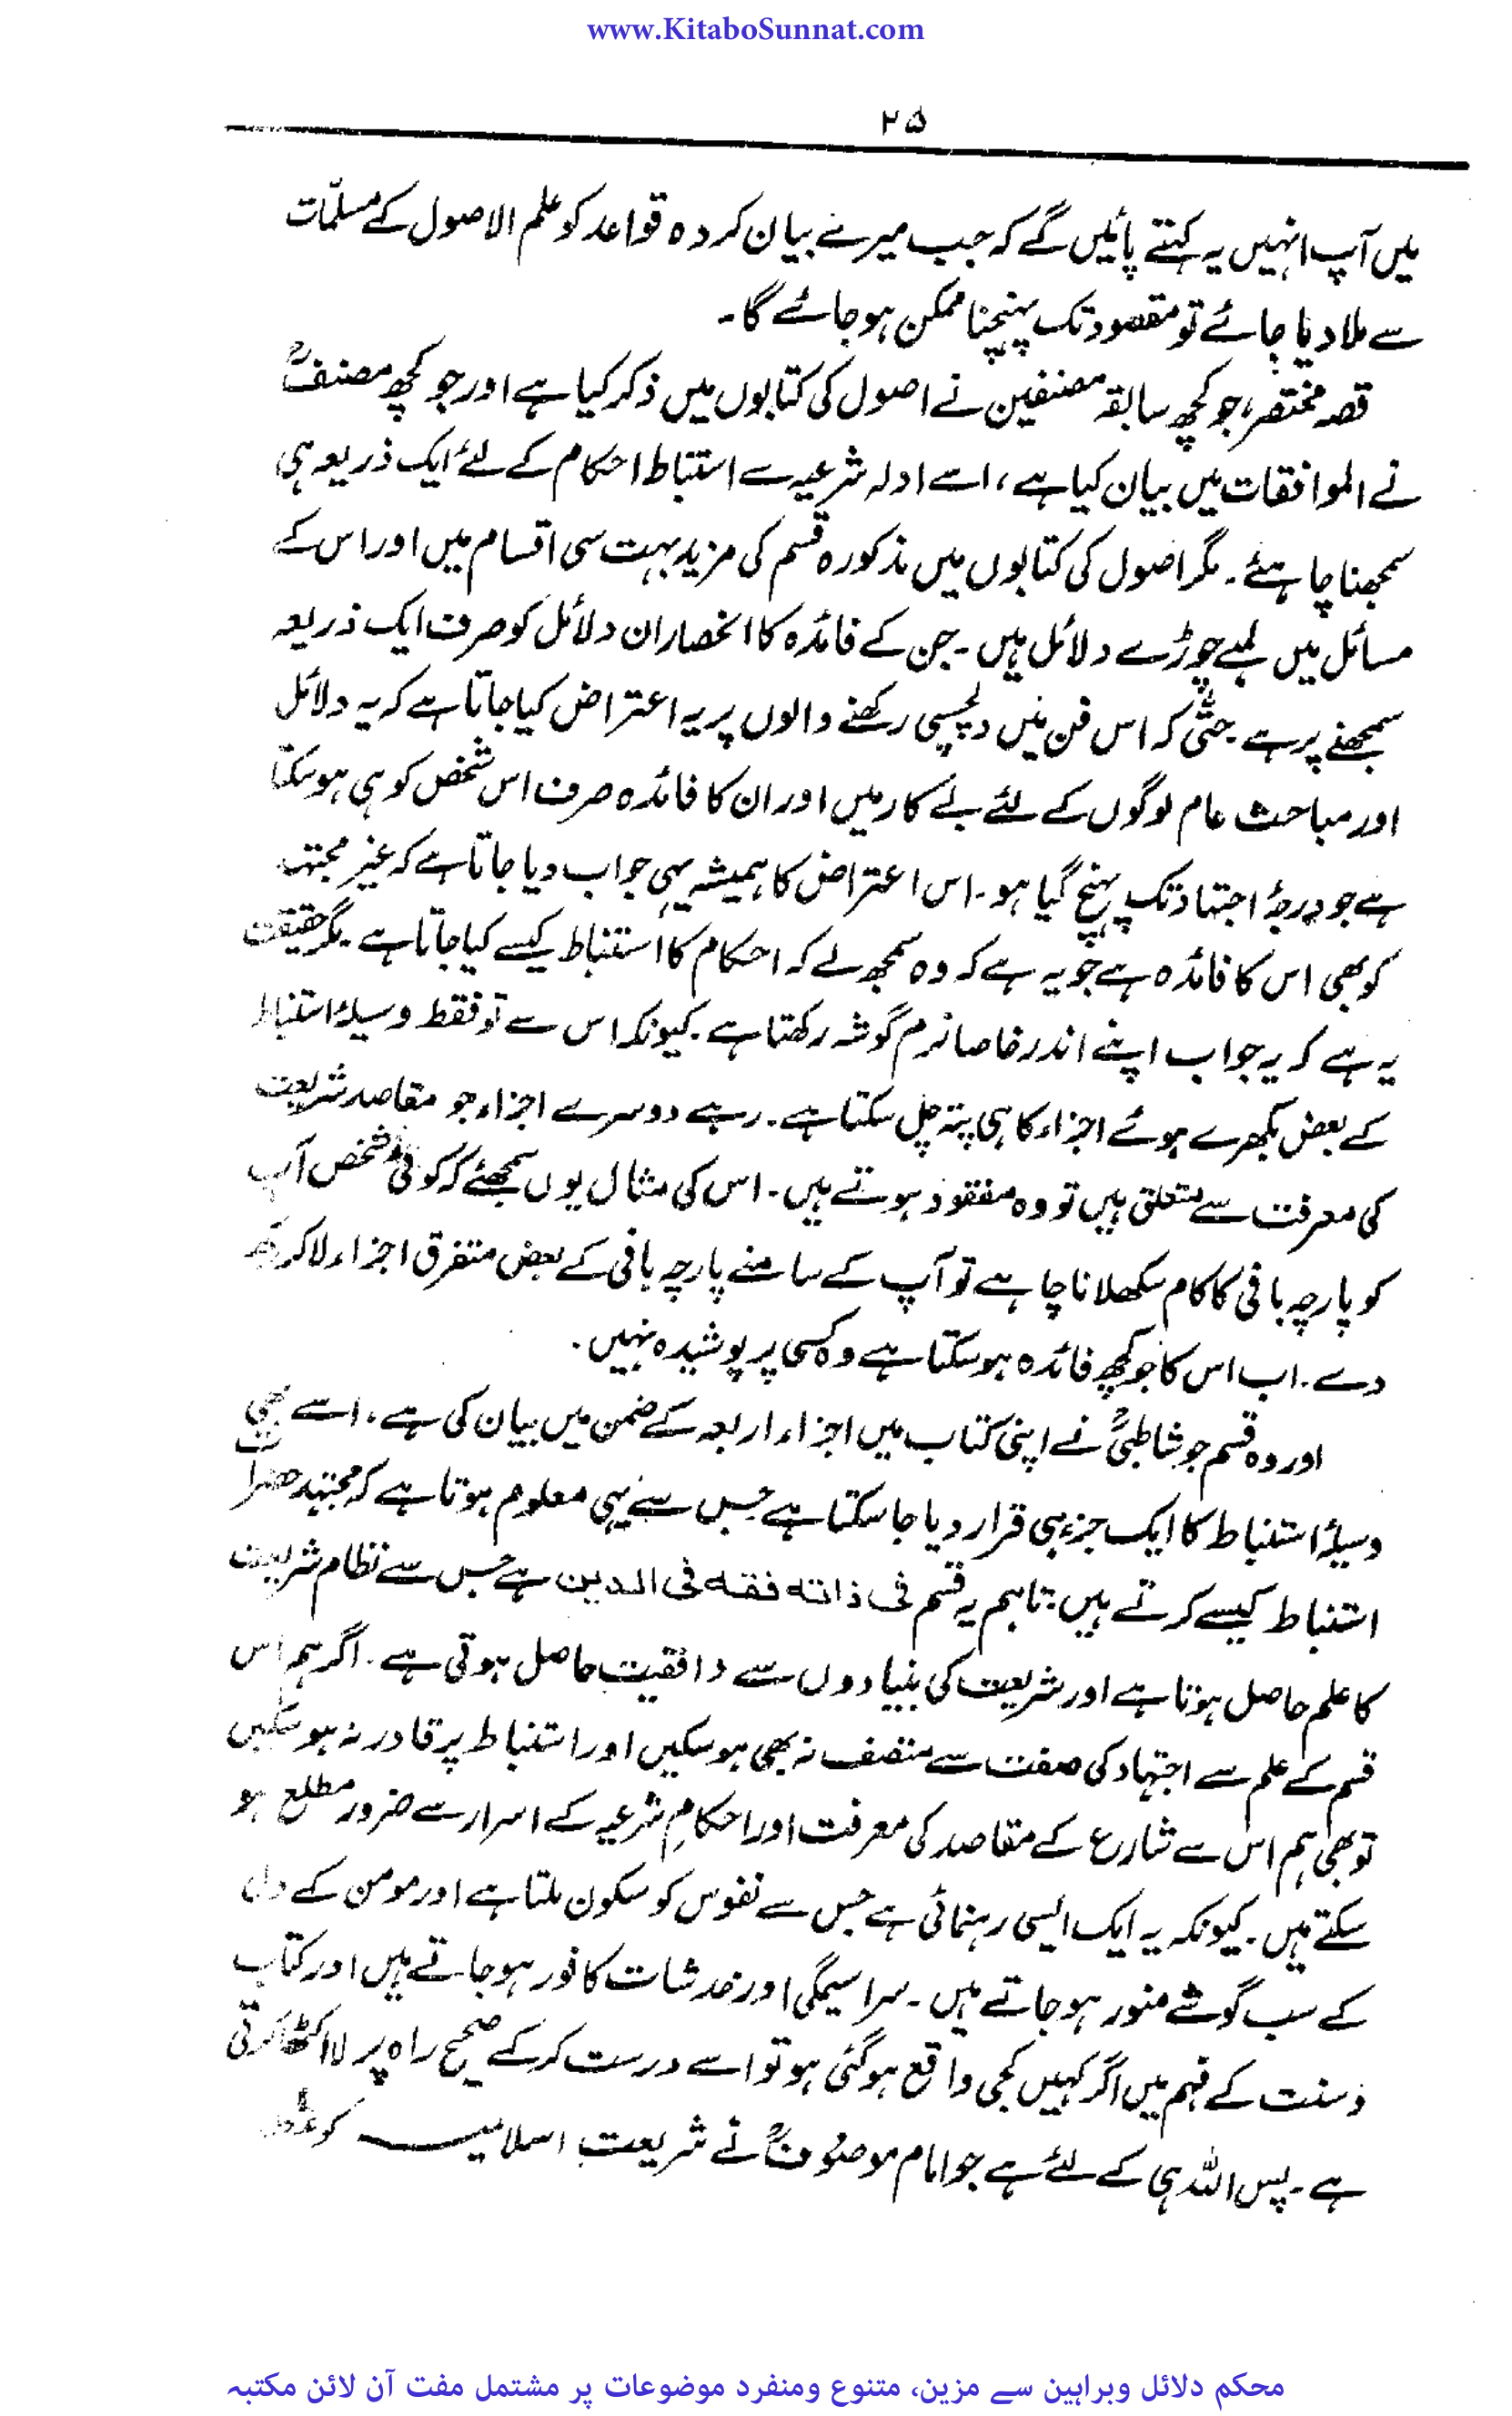 www.KitaboSunnat.com
۲۵
میں آپ انہیں یہ کہتے پائیں گے کہ جب میرے بیان کردہ قواعد کو علم الاصول کے مسلّمات
سے ملا دیا جائے تو مقصود تک پہنچنا ممکن ہو جائے گا۔
قصہ مختصر، جو کچھ سابقہ مصنفین نے اصول کی کتابوں میں ذکر کیا ہے اور جو کچھ مصنفؒ
نے الموافقات میں بیان کیا ہے، اسے ادلہ شرعیہ سے استنباط احکام کے لئے ایک ذریعہ ہی
سمجھنا چاہئے۔ مگر اصول کی کتابوں میں مذکورہ قسم کی مزید بہت سی اقسام ہیں اور اس کے
مسائل میں لمبے چوڑے دلائل ہیں۔ جن کے فائدہ کا انحصار ان دلائل کو صرف ایک ذریعہ
سمجھنے پر ہے۔ حتّٰی کہ اس فن میں دلچسپی رکھنے والوں پر یہ اعتراض کیا جاتا ہے کہ یہ دلائل
اور مباحث عام لوگوں کے لئے بے کار ہیں اور ان کا فائدہ صرف اس شخص کو ہی ہو سکتا
ہے جو درجۂ اجتہاد تک پہنچ گیا ہو۔ اس اعتراض کا ہمیشہ یہی جواب دیا جاتا ہے کہ غیر مجتہد
کو بھی اس کا فائدہ ہے جو یہ ہے کہ وہ سمجھ لے کہ احکام کا استنباط کیسے کیا جاتا ہے۔ مگر حقیقت
یہ ہے کہ یہ جواب اپنے اندر خاصا نرم گوشہ رکھتا ہے۔ کیونکہ اس سے تو فقط وسیلۂ استنباط
کے بعض بکھرے ہوئے اجزاء کا ہی پتہ چل سکتا ہے۔ رہے دوسرے اجزاء جو مقاصد شریعت
کی معرفت سے متعلق ہیں تو وہ مفقود ہوتے ہیں۔ اس کی مثال یوں سمجھئے کہ کوئی شخص آپ
کو پارچہ بافی کا کام سکھلانا چاہے تو آپ کے سامنے پارچہ بافی کے بعض متفرق اجزاء لا کر رکھ
دے۔ اب اس کا جو کچھ فائدہ ہو سکتا ہے وہ کسی پر پوشیدہ نہیں۔
اور وہ قسم جو شاطبیؒ نے اپنی کتاب میں اجزاء اربعہ کے ضمن میں بیان کی ہے، اسے بھی
وسیلۂ استنباط کا ایک جزء ہی قرار دیا جا سکتا ہے جس سے یہی معلوم ہوتا ہے کہ مجتہد حضرات
استنباط کیسے کرتے ہیں؛ تاہم یہ قسم فی ذاتہ فقہ فی الدین ہے جس سے نظام شریعت
کا علم حاصل ہوتا ہے اور شریعت کی بنیادوں سے واقفیت حاصل ہوتی ہے۔ اگر ہم اس
قسم کے علم سے اجتہاد کی صفت سے متصف نہ بھی ہو سکیں اور استنباط پر قادر نہ ہو سکیں
تو بھی ہم اس سے شارع کے مقاصد کی معرفت اور احکامِ شرعیہ کے اسرار سے ضرور مطلع ہو
سکتے ہیں۔ کیونکہ یہ ایک ایسی رہنمائی ہے جس سے نفوس کو سکون ملتا ہے اور مومن کے دل
کے سب گوشے منور ہو جاتے ہیں۔ سراسیمگی اور خدشات کافور ہو جاتے ہیں اور کتاب
و سنت کے فہم میں اگر کہیں کجی واقع ہو گئی ہو تو اسے درست کر کے صحیح راہ پر لا اکٹھا کرتی
ہے۔ پس اللہ ہی کے لئے ہے جو امام موصوفؒ نے شریعتِ اسلامیہ کو
محکم دلائل وبراہین سے مزین، متنوع ومنفرد موضوعات پر مشتمل مفت آن لائن مکتبہ